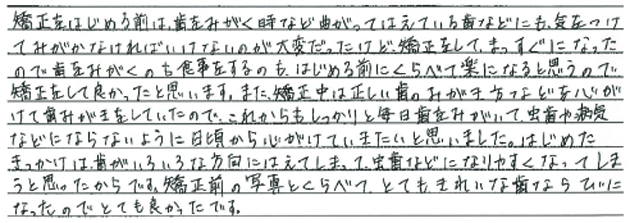 矯正をはじめる前は、歯をみがく時など曲がってはえている歯などにも、気をつけ
てみがかなければいけないのが大変だったけど、矯正をして、まっすぐになった
ので歯をみがくのも食事をするのも、はじめる前にくらべて楽になると思うので
矯正をして良かったと思います。また、矯正中は正しい歯のみがき方などを心が
けて歯みがきをしていたので、これからもしっかりと毎日歯をみがいて、虫歯や病気
などにならないように日頃から心がけていきたいと思いました。はじめた
きっかけは、歯がいろいろな方向にはえてしまって、虫歯などになりやすくなってしま
うと思ったからです。矯正前の写真とくらべて、とてもきれいな歯ならびに
なったのでとても良かったです。